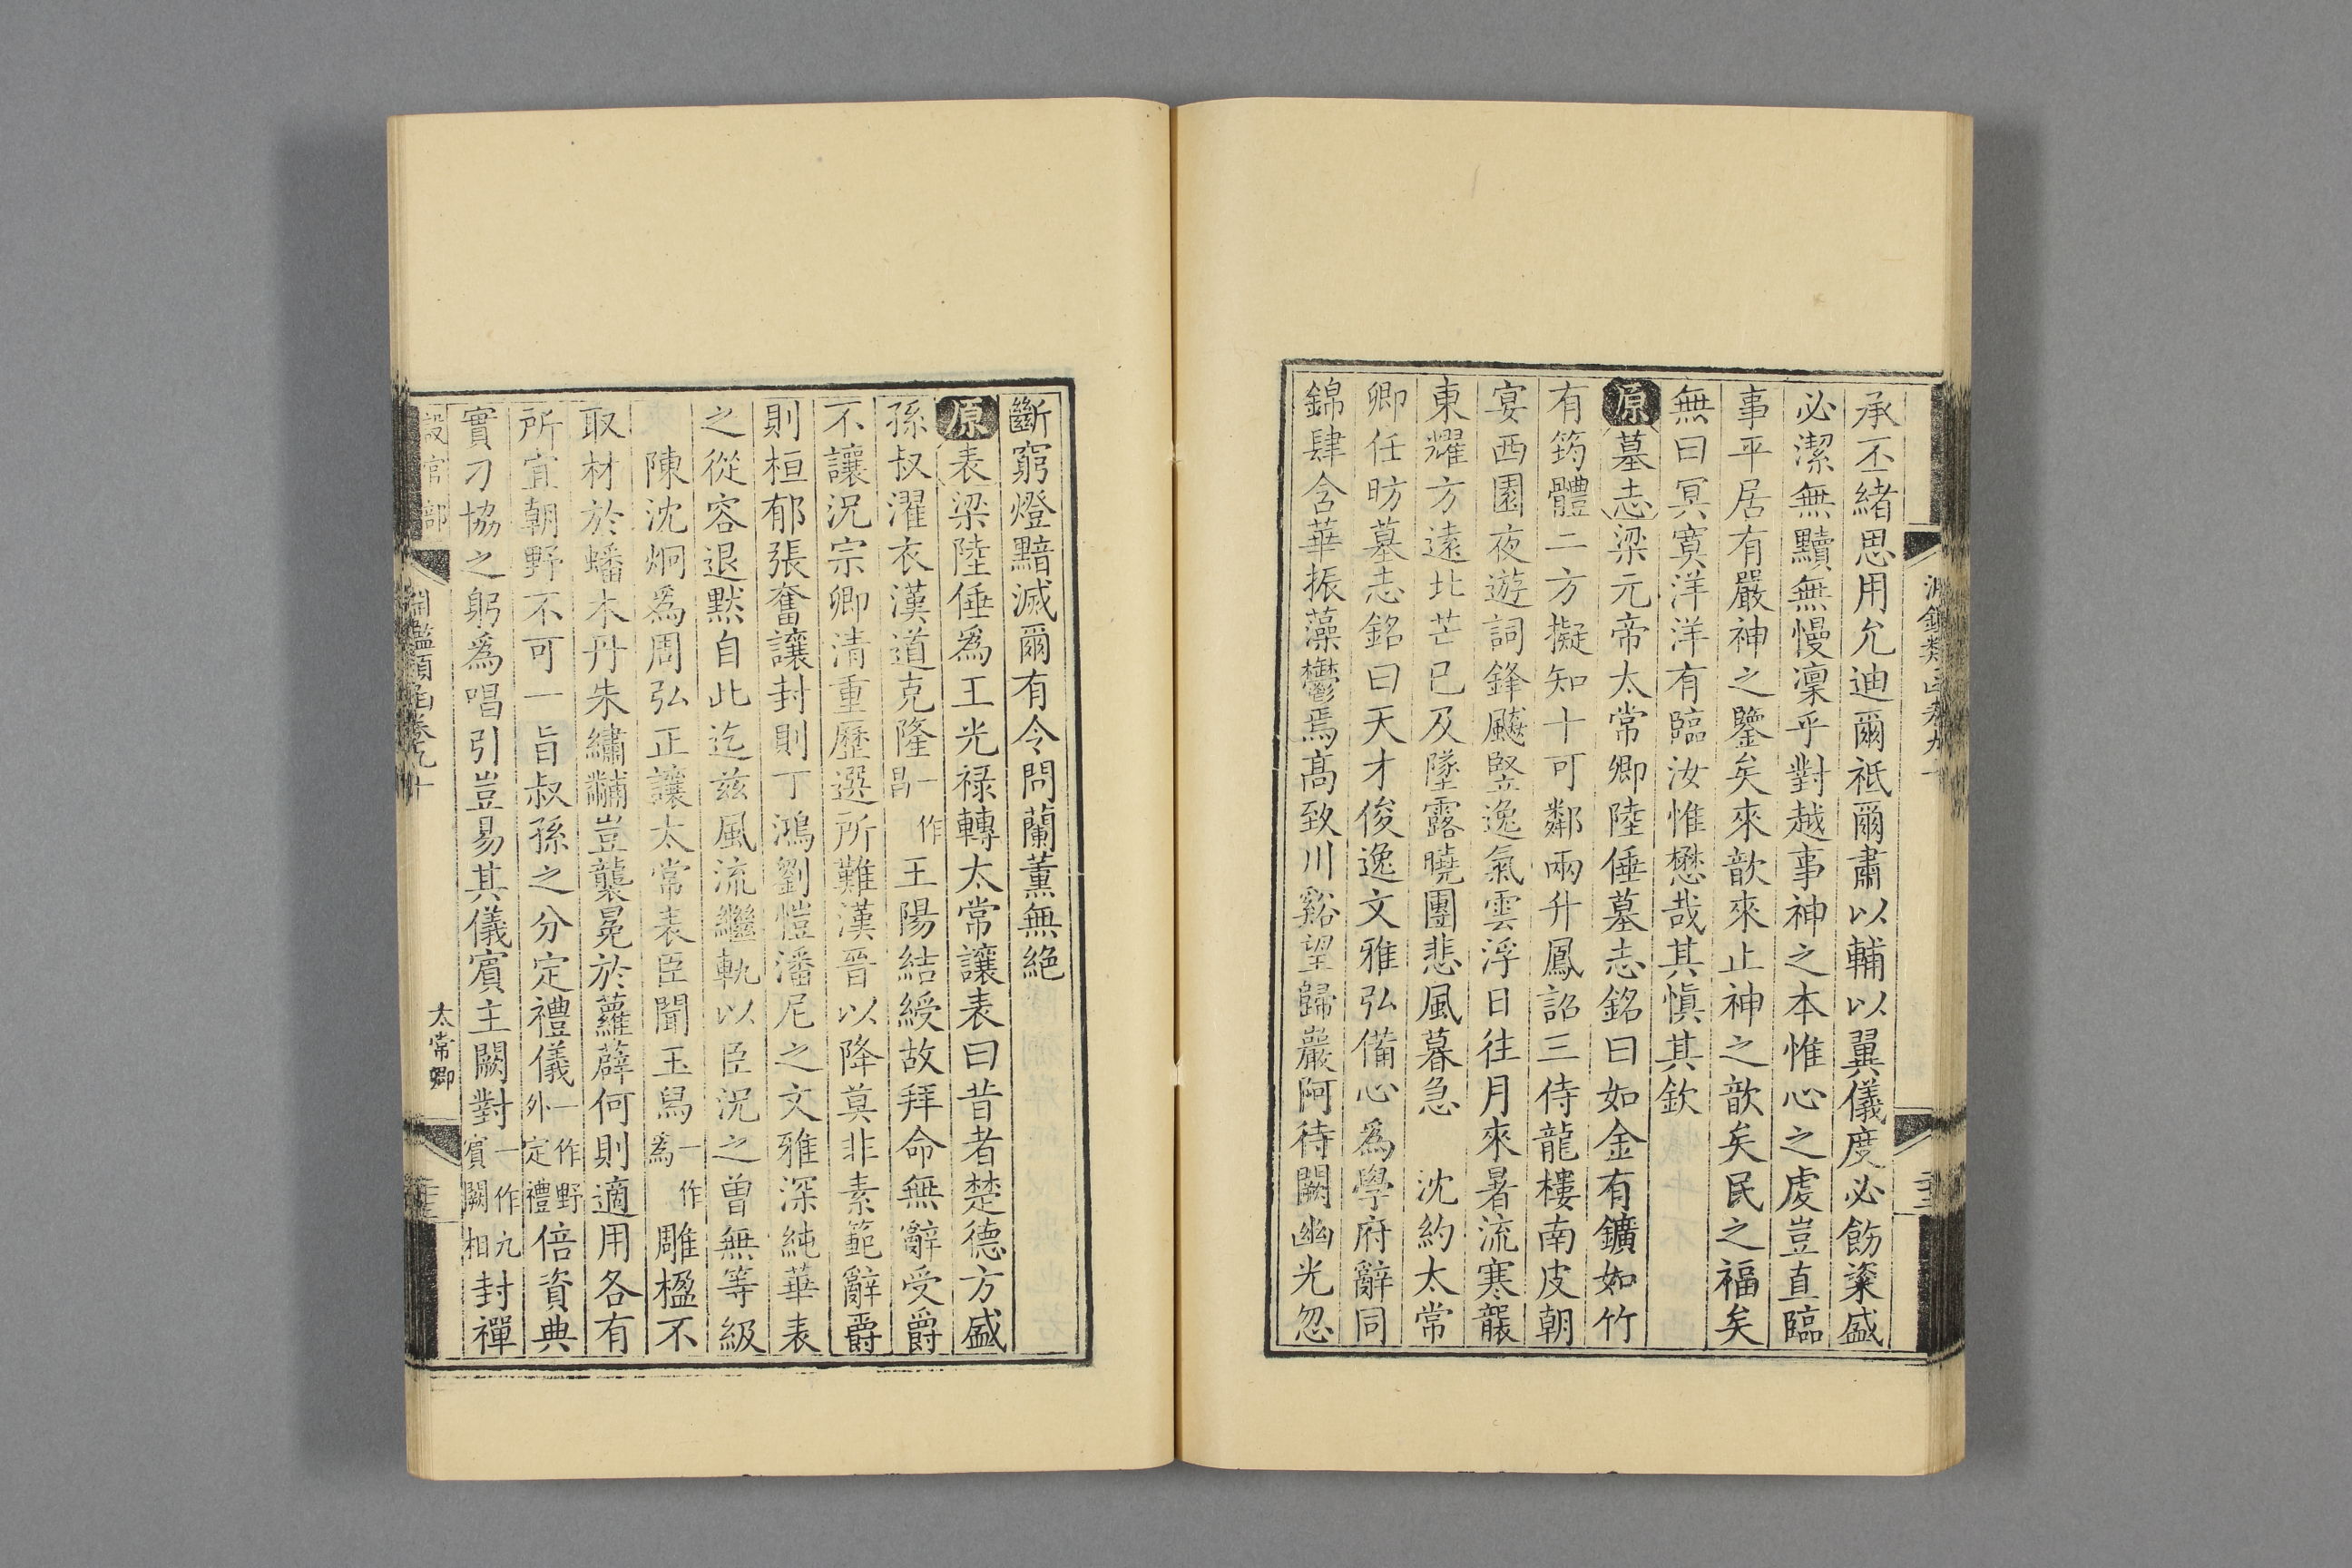 承丕緒思用允迪爾祗爾肅以輔以翼儀度必飭粢盛
必潔無黷無慢凜乎對越事神之本惟心之虔豈直臨
事平居有嚴神之鑒矣來歆來止神之歆矣民之福矣
無曰冥寞洋洋有臨汝惟懋哉其慎其欽
原墓志梁元帝太常卿陸倕墓志銘曰如金有鑛如竹
有筠體二方擬知十可鄰兩升鳳詔三侍龍樓南皮朝
宴西園夜遊詞鋒飈豎逸氣雲浮日往月來暑流寒襲
東耀方遠北芒已及墜露曉團悲風暮急　沈約太常
卿任昉墓志銘曰天才俊逸文雅弘備心為學府辭同
錦肆含華振藻鬱焉高致川谿望歸巖阿待闕幽光忽
斷窮燈黯滅爾有令問蘭薰無絕
原表梁陸倕為王光祿轉太常讓表曰昔者楚德方盛
孫叔濯衣漢道克隆一作昌王陽結綬故拜命無辭受爵
不讓況宗卿清重歷選所難漢晉以降莫非素範辭爵
則桓郁張奮讓封則丁鴻劉愷潘尼之文雅深純華表
之從容退默自此迄茲風流繼軌以臣況之曾無等級
陳沈炯為周弘正讓太常表臣聞玉舄一作為雕楹不
取材於蟠木丹朱繡黼豈襲冕於蘿薜何則適用各有
所宜朝野不可一旨叔孫之分定禮儀一作野外定禮倍資典
實刁協之躬為唱引豈易其儀賓主闕對一作九賓闕相封禪
設官部
淵鑑類函卷九十
太常卿